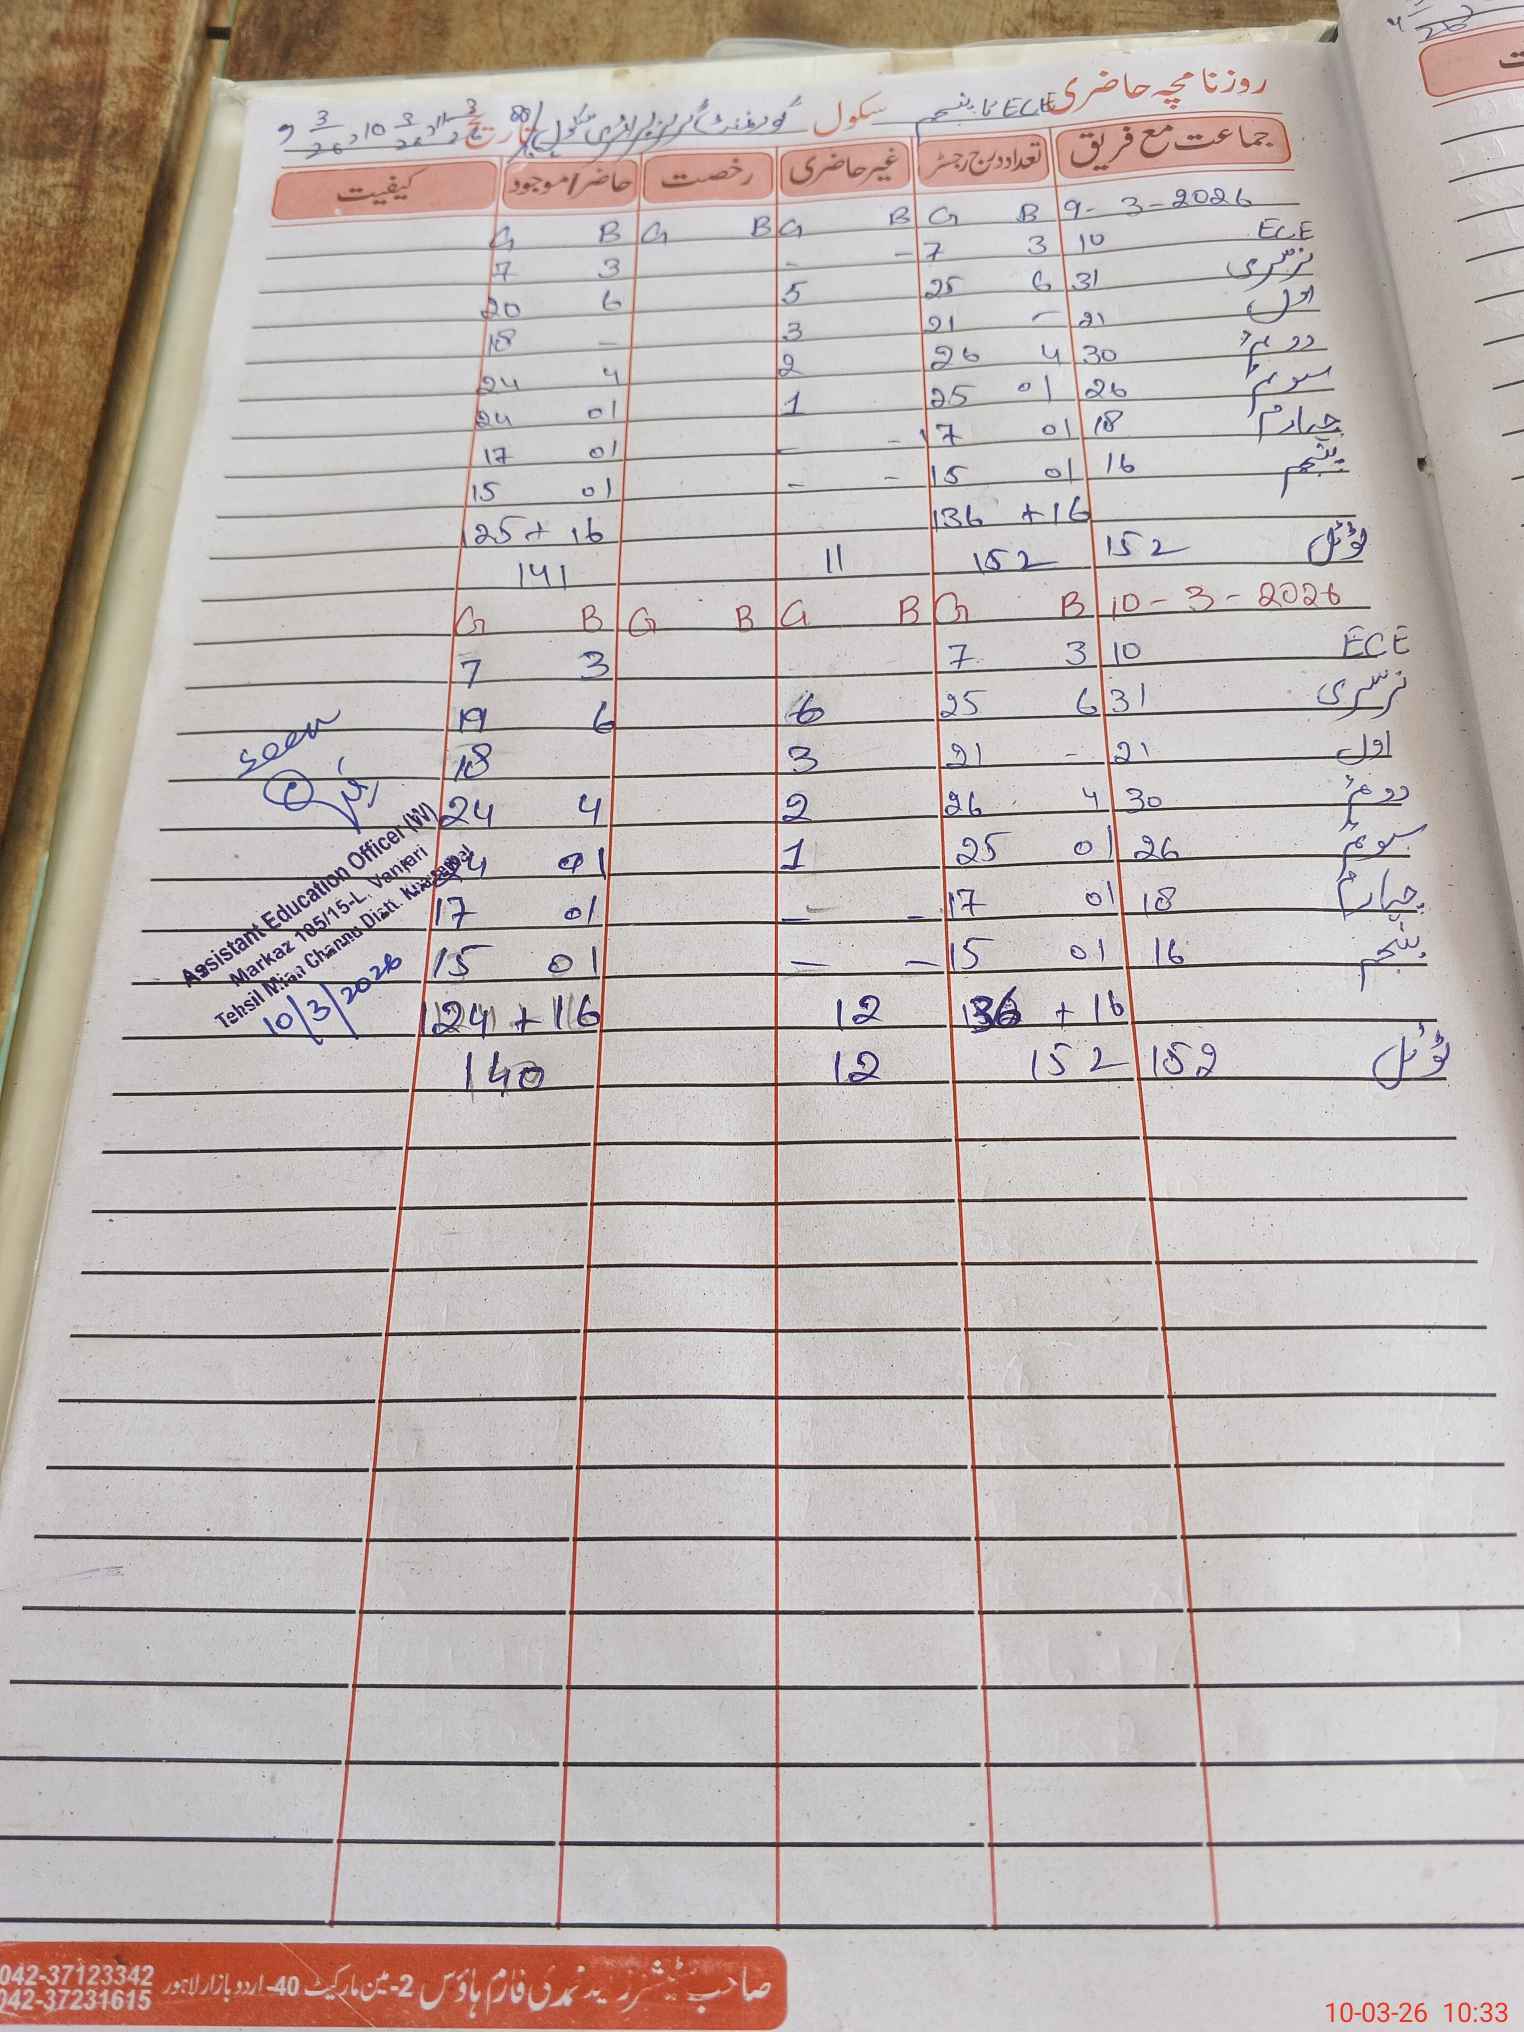 روزنامچہ حاضری ECE تا پنجم سکول گورنمنٹ گرلز پرائمری سکول تاریخ
جماعت مع فریق تعداد درج رجسٹر غیر حاضری رخصت حاضر/موجود کیفیت
9-3-2026 B G B G B G B G
ECE 10 3 7 - - 3 7
نرسری 31 6 25 5 6 20
اول 21 - 21 3 - 18
دوئم 30 4 26 2 4 24
سوئم 26 01 25 1 01 24
چہارم 18 01 17 - - 01 17
پنجم 16 01 15 - - 01 15
136 + 16 125 + 16
ٹوٹل 152 152 11 141
10-3-2026 B G B G B G B G
ECE 10 3 7 3 7
نرسری 31 6 25 6 6 19
اول 21 - 21 3 18
دوئم 30 4 26 2 4 24
سوئم 26 01 25 1 01 24
چہارم 18 01 17 - - 01 17
پنجم 16 01 15 - - 01 15
136 + 16 12 124 + 16
ٹوٹل 152 152 12 140
seen
Assistant Education Officer (W)
Markaz 105/15-L. Vanjari
Tehsil Mian Channu Distt. Khanewal
10/3/2026
صاحب سٹیشنرز اینڈ نمدی فارم ہاؤس 2-مین مارکیٹ 40-اردو بازار لاہور
042-37123342
042-37231615
10-03-26 10:33